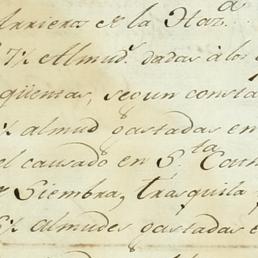 Arriera de la Haz.a
7½ Almud.s dadas á los
qüentas, segun consta
½ almud gastadas en
el causado en S.ta
Siembra, trasquila
6½ almudes gastadas e